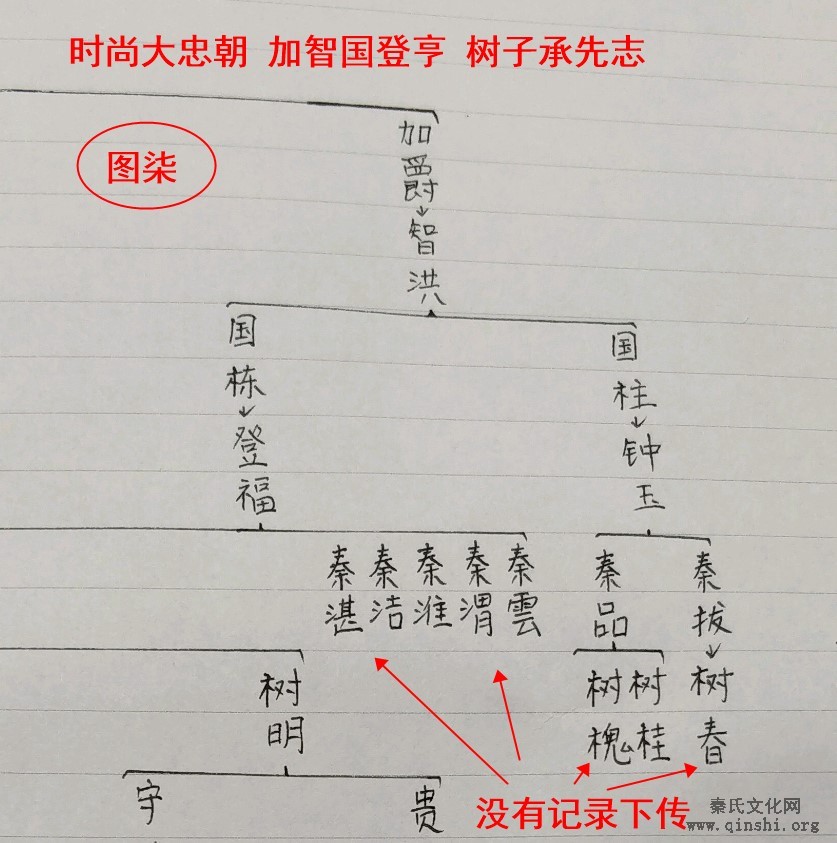 时尚大忠朝 加智国登亨 树子承先志
图柒
加爵
智洪
国栋
登福
国柱
钟玉
秦湛
秦洁
秦淮
秦渭
秦雲
秦品
秦拔
树槐
树桂
树春
树明
守
贵
没有记录下传
秦氏文化网
www.qinshi.org